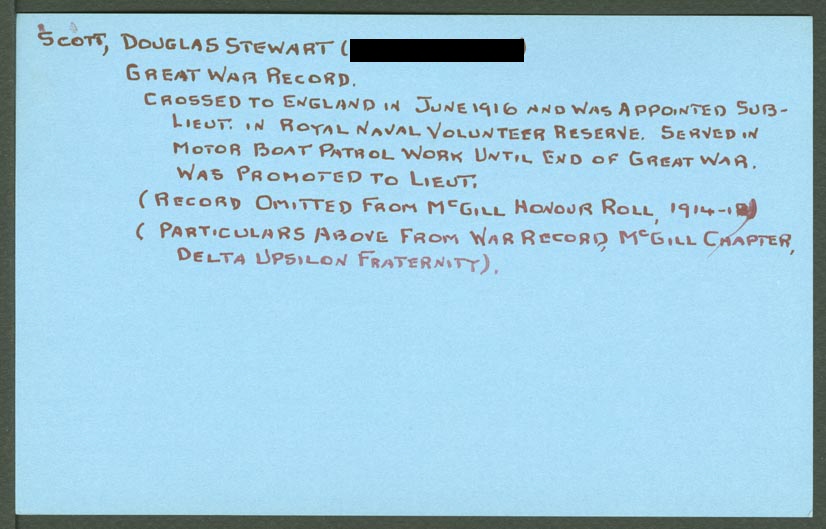 SCOTT, DOUGLAS STEWART (
GREAT WAR RECORD.
CROSSED TO ENGLAND IN JUNE 1916 AND WAS APPOINTED SUB-
LIEUT. IN ROYAL NAVAL VOLUNTEER RESERVE. SERVED IN
MOTOR BOAT PATROL WORK UNTIL END OF GREAT WAR.
WAS PROMOTED TO LIEUT.
(RECORD OMITTED FROM McGILL HONOUR ROLL, 1914-18)
( PARTICULARS ABOVE FROM WAR RECORD, McGILL CHAPTER,
DELTA UPSILON FRATERNITY).